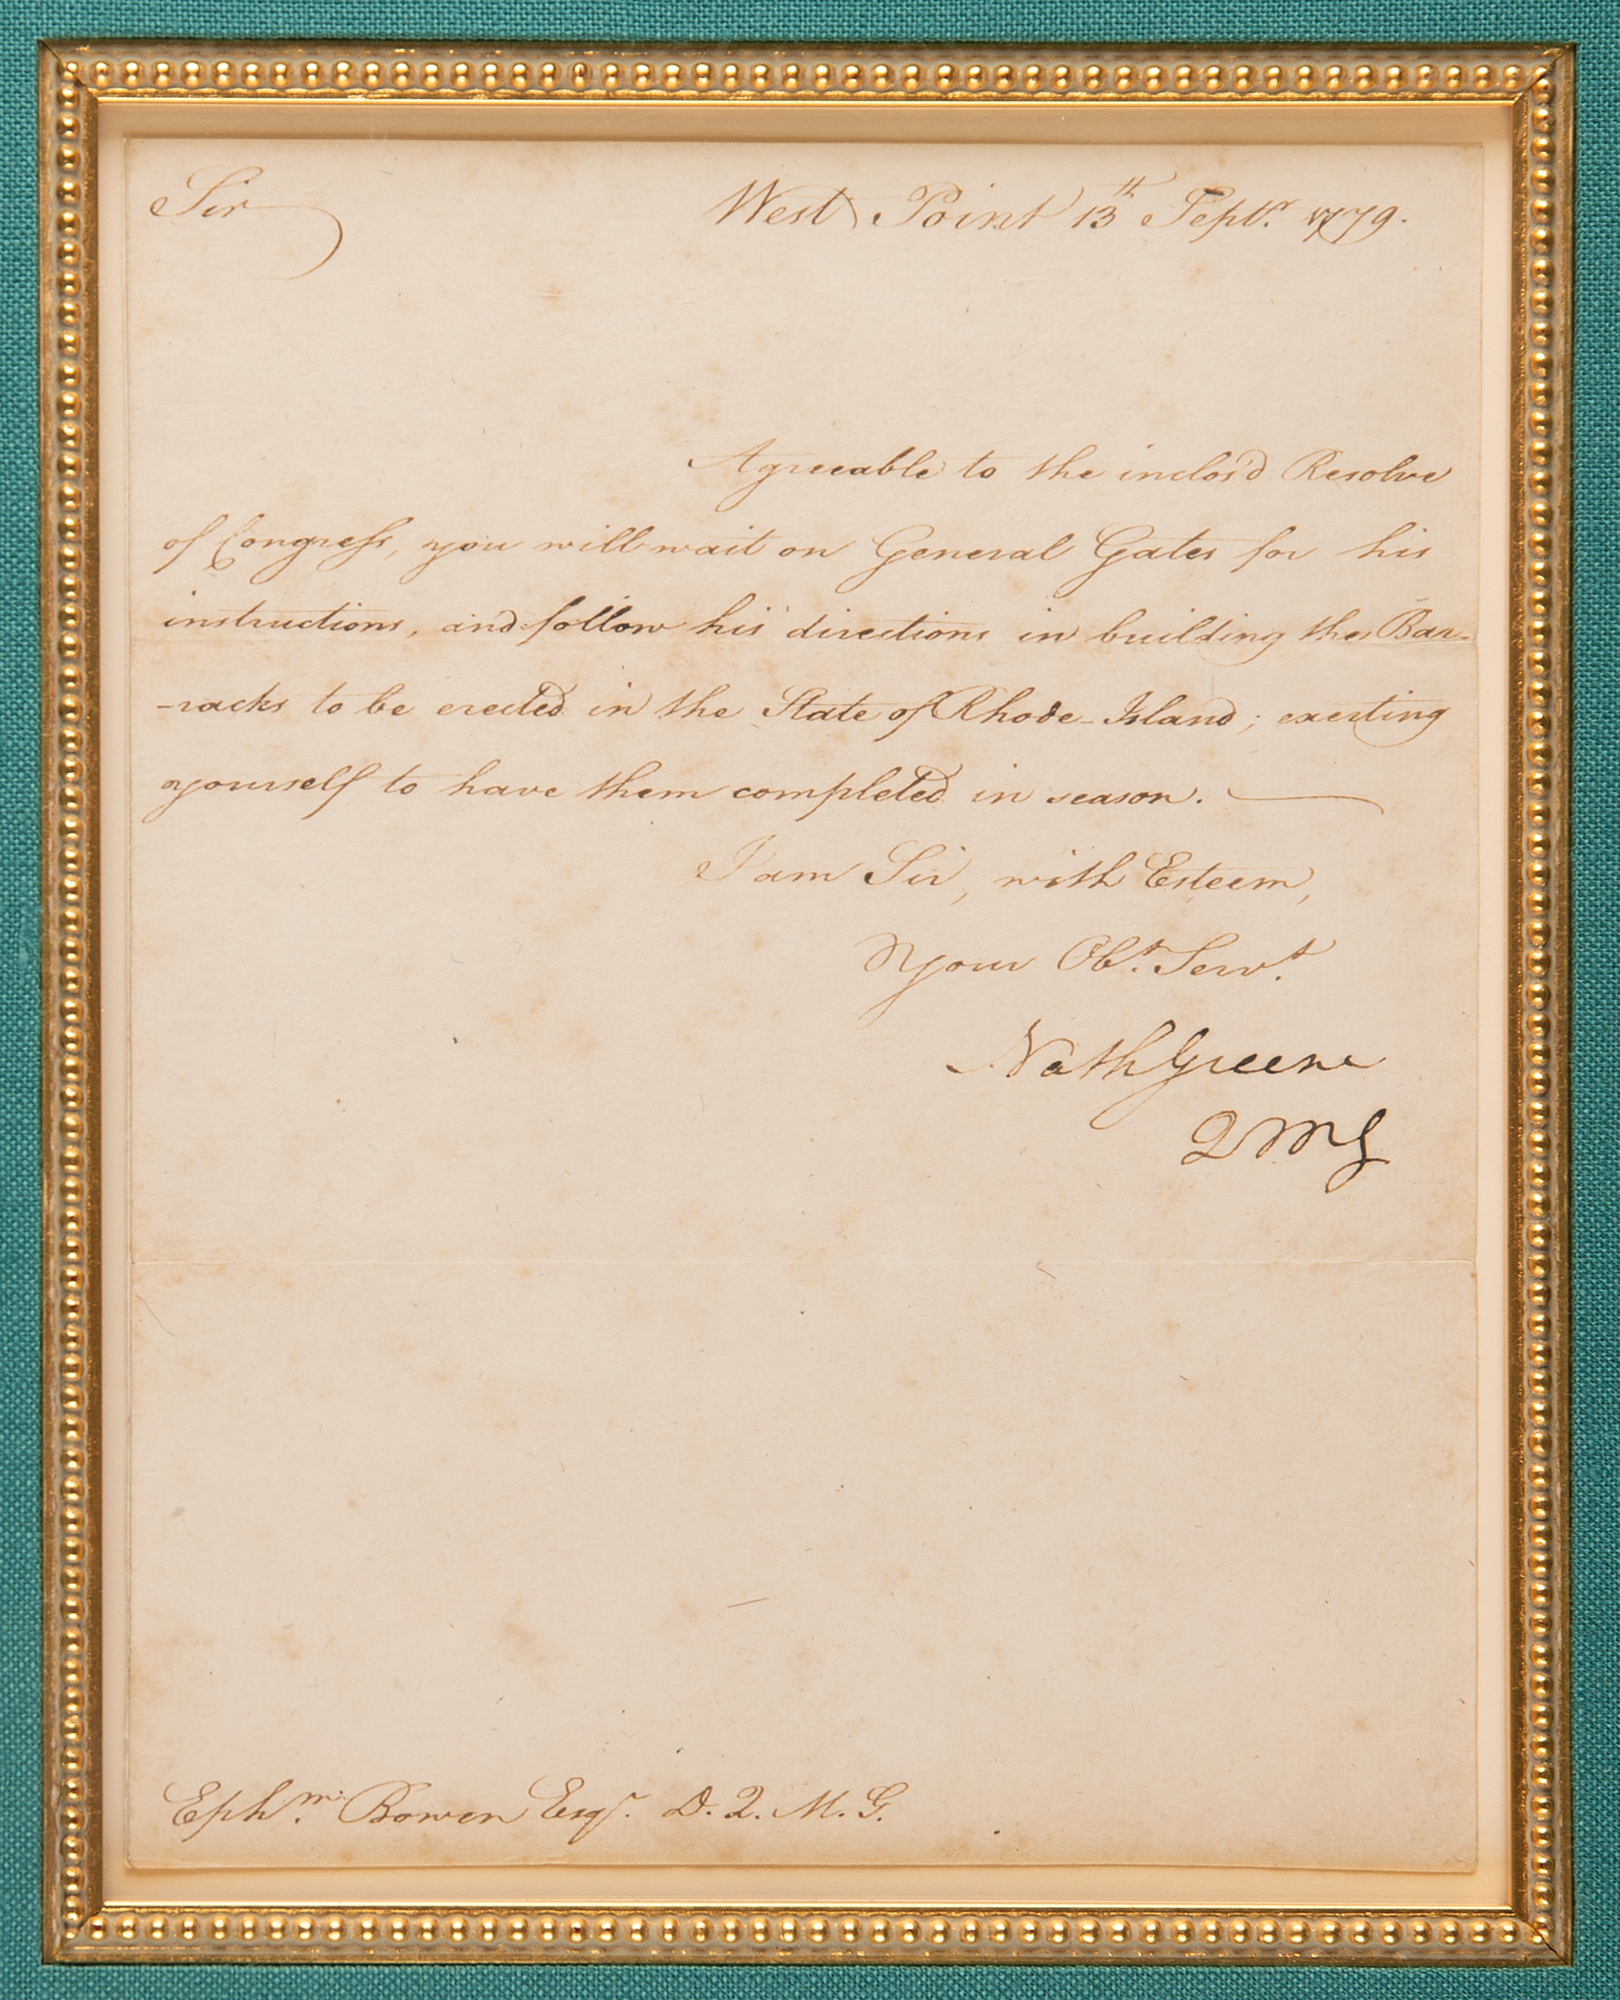 Sir West Point 13th Septr. 1779.
Agreeable to the inclos'd Resolve
of Congress, you will wait on General Gates for his
instructions, and follow his directions in building the Bar-
-racks to be erected in the State of Rhode-Island; exerting
yourself to have them completed in season.
I am Sir, with Esteem,
Your Obt. Servt.
Nath Greene
QMG
Ephm. Bowen Esqr. D. Q. M. G.